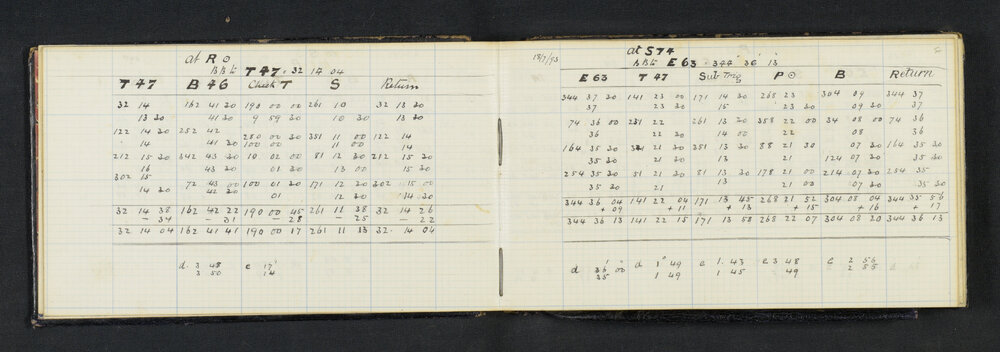 at R ⊙
T 47 . 32 14 04
T 47 B 46 Check T S Return
32 14 162 41 20 190 00 00 261 10 32 13 20
13 20 41 20 9 59 30 10 30 13 20
122 14 20 252 42 280 00 30 351 11 00 122 14
14 41 20 100 00 11 00 14
212 15 20 342 43 20 10 02 00 81 12 20 212 15 20
16 43 20 01 20 13 00 15 20
302 15 72 43 00 100 01 20 171 12 20 302 15 00
14 20 42 20 01 12 20 14 20
32 14 38 162 42 22 190 00 45 261 11 38 32 14 26
- 34 - 31 - 28 - 25 22
32 14 04 162 41 41 190 00 17 261 11 33 32 14 04
d 3 48 e 17
3 50 14
at S74
E 63 . 344° 36' 13"
E 63 T 47 Sub-Trig P ⊙ B Return
344 37 30 141 23 00 171 14 30 268 23 304 09 344 37
37 23 20 15 23 30 09 30 37
74 36 00 231 22 261 13 20 358 22 00 34 08 00 74 36
36 22 20 14 00 22 08 36
164 35 30 321 21 20 351 13 88 21 30 07 20 164 35 20
35 20 21 20 13 21 124 07 20 35 20
254 35 30 51 21 20 81 13 20 178 21 00 214 07 20 254 35
35 20 21 13 21 00 07 20 35 20
344 36 04 141 22 04 171 13 45 268 21 52 304 08 04 344 35 56
+ 09 + 11 + 13 + 15 + 16 + 17
344 36 13 141 22 15 171 13 58 268 22 07 304 08 20 344 36 13
d 36 00 d 1 49 e 1. 43 e 3 48 e 2 56
35 1 49 1 45 49 2 55